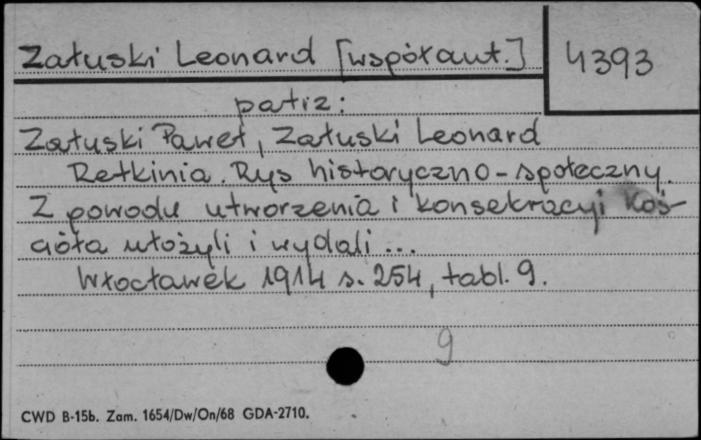 Załuski Leonard [współaut.]
4393
patrz:
Załuski Paweł, Załuski Leonard
Retkinia. Rys historyczno-społeczny.
Z powodu utworzenia i konsekracyi Koś-
cioła ułożyli i wydali ...
Włocławek 1914 s. 254, tabl. 9.
9
CWD B-15b. Zam. 1654/Dw/On/68 GDA-2710.